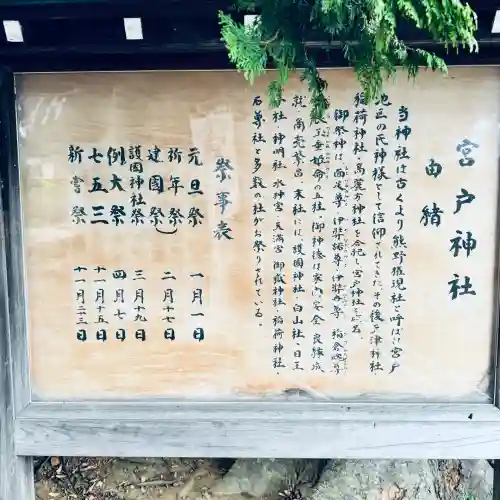 宮戸神社
由緒
当神社は古くより熊野権現社と呼ばれ宮戸
地区の氏神様として信仰されてきた。その後戸津神社
稲荷神社・高麗方神社を合祀し宮戸神社
御祭神は、面足尊・伊弉諾尊・伊弉冉尊・稲倉魂尊
姫命の五柱・御神徳は家内安全 良縁成
就 商売繁昌 末社には、護国神社・白山社・日王
社・神明社 水神宮・天満宮 御嶽神社・稲荷神社・
石尊社と多数の社がお祭りされている。
祭事表
元旦祭 一月一日
祈年祭 二月十七日
建国祭
護国神社祭 三月十九日
例大祭 四月七日
七五三 十一月十五日
新嘗祭 十一月二三日